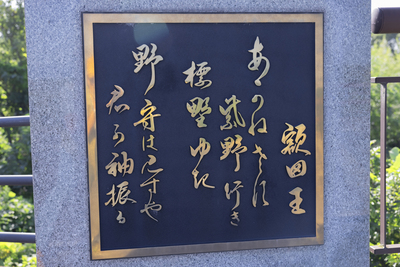 額田王
あかねさす
紫野行き
標野ゆき
野守は見ずや
君が袖振る